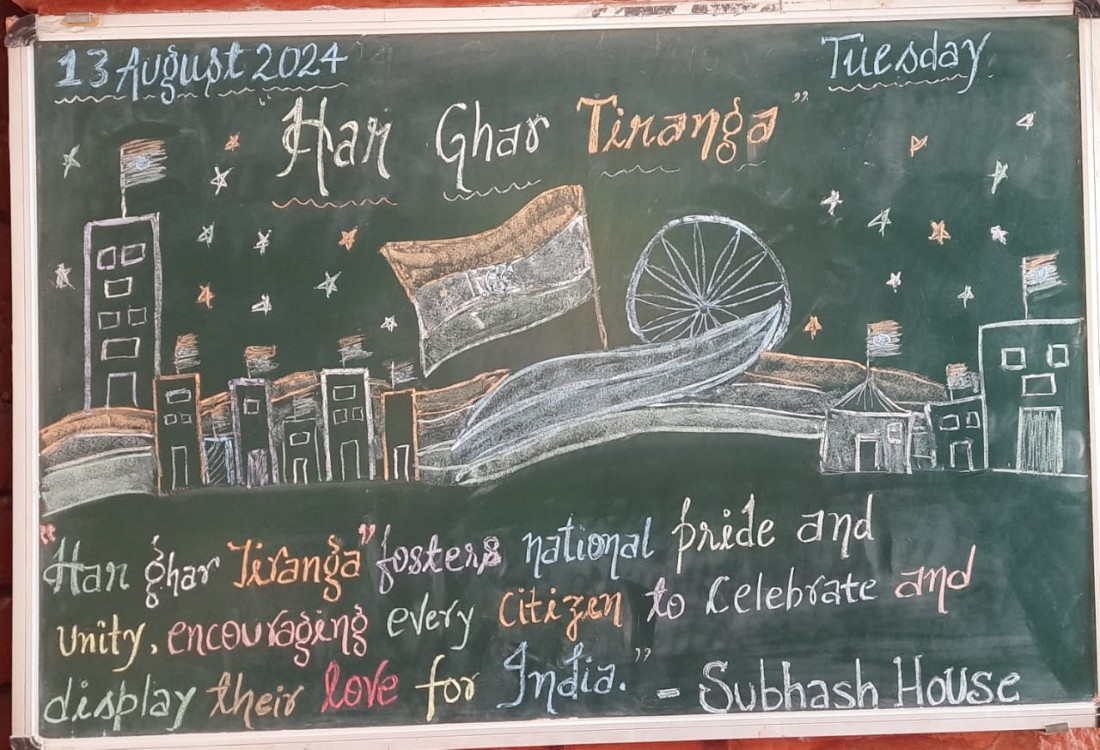 13 August 2024 Tuesday
Har Ghar Tiranga”
“Har ghar Tiranga” fosters national pride and
unity, encouraging every citizen to celebrate and
display their love for India.” - Subhash House